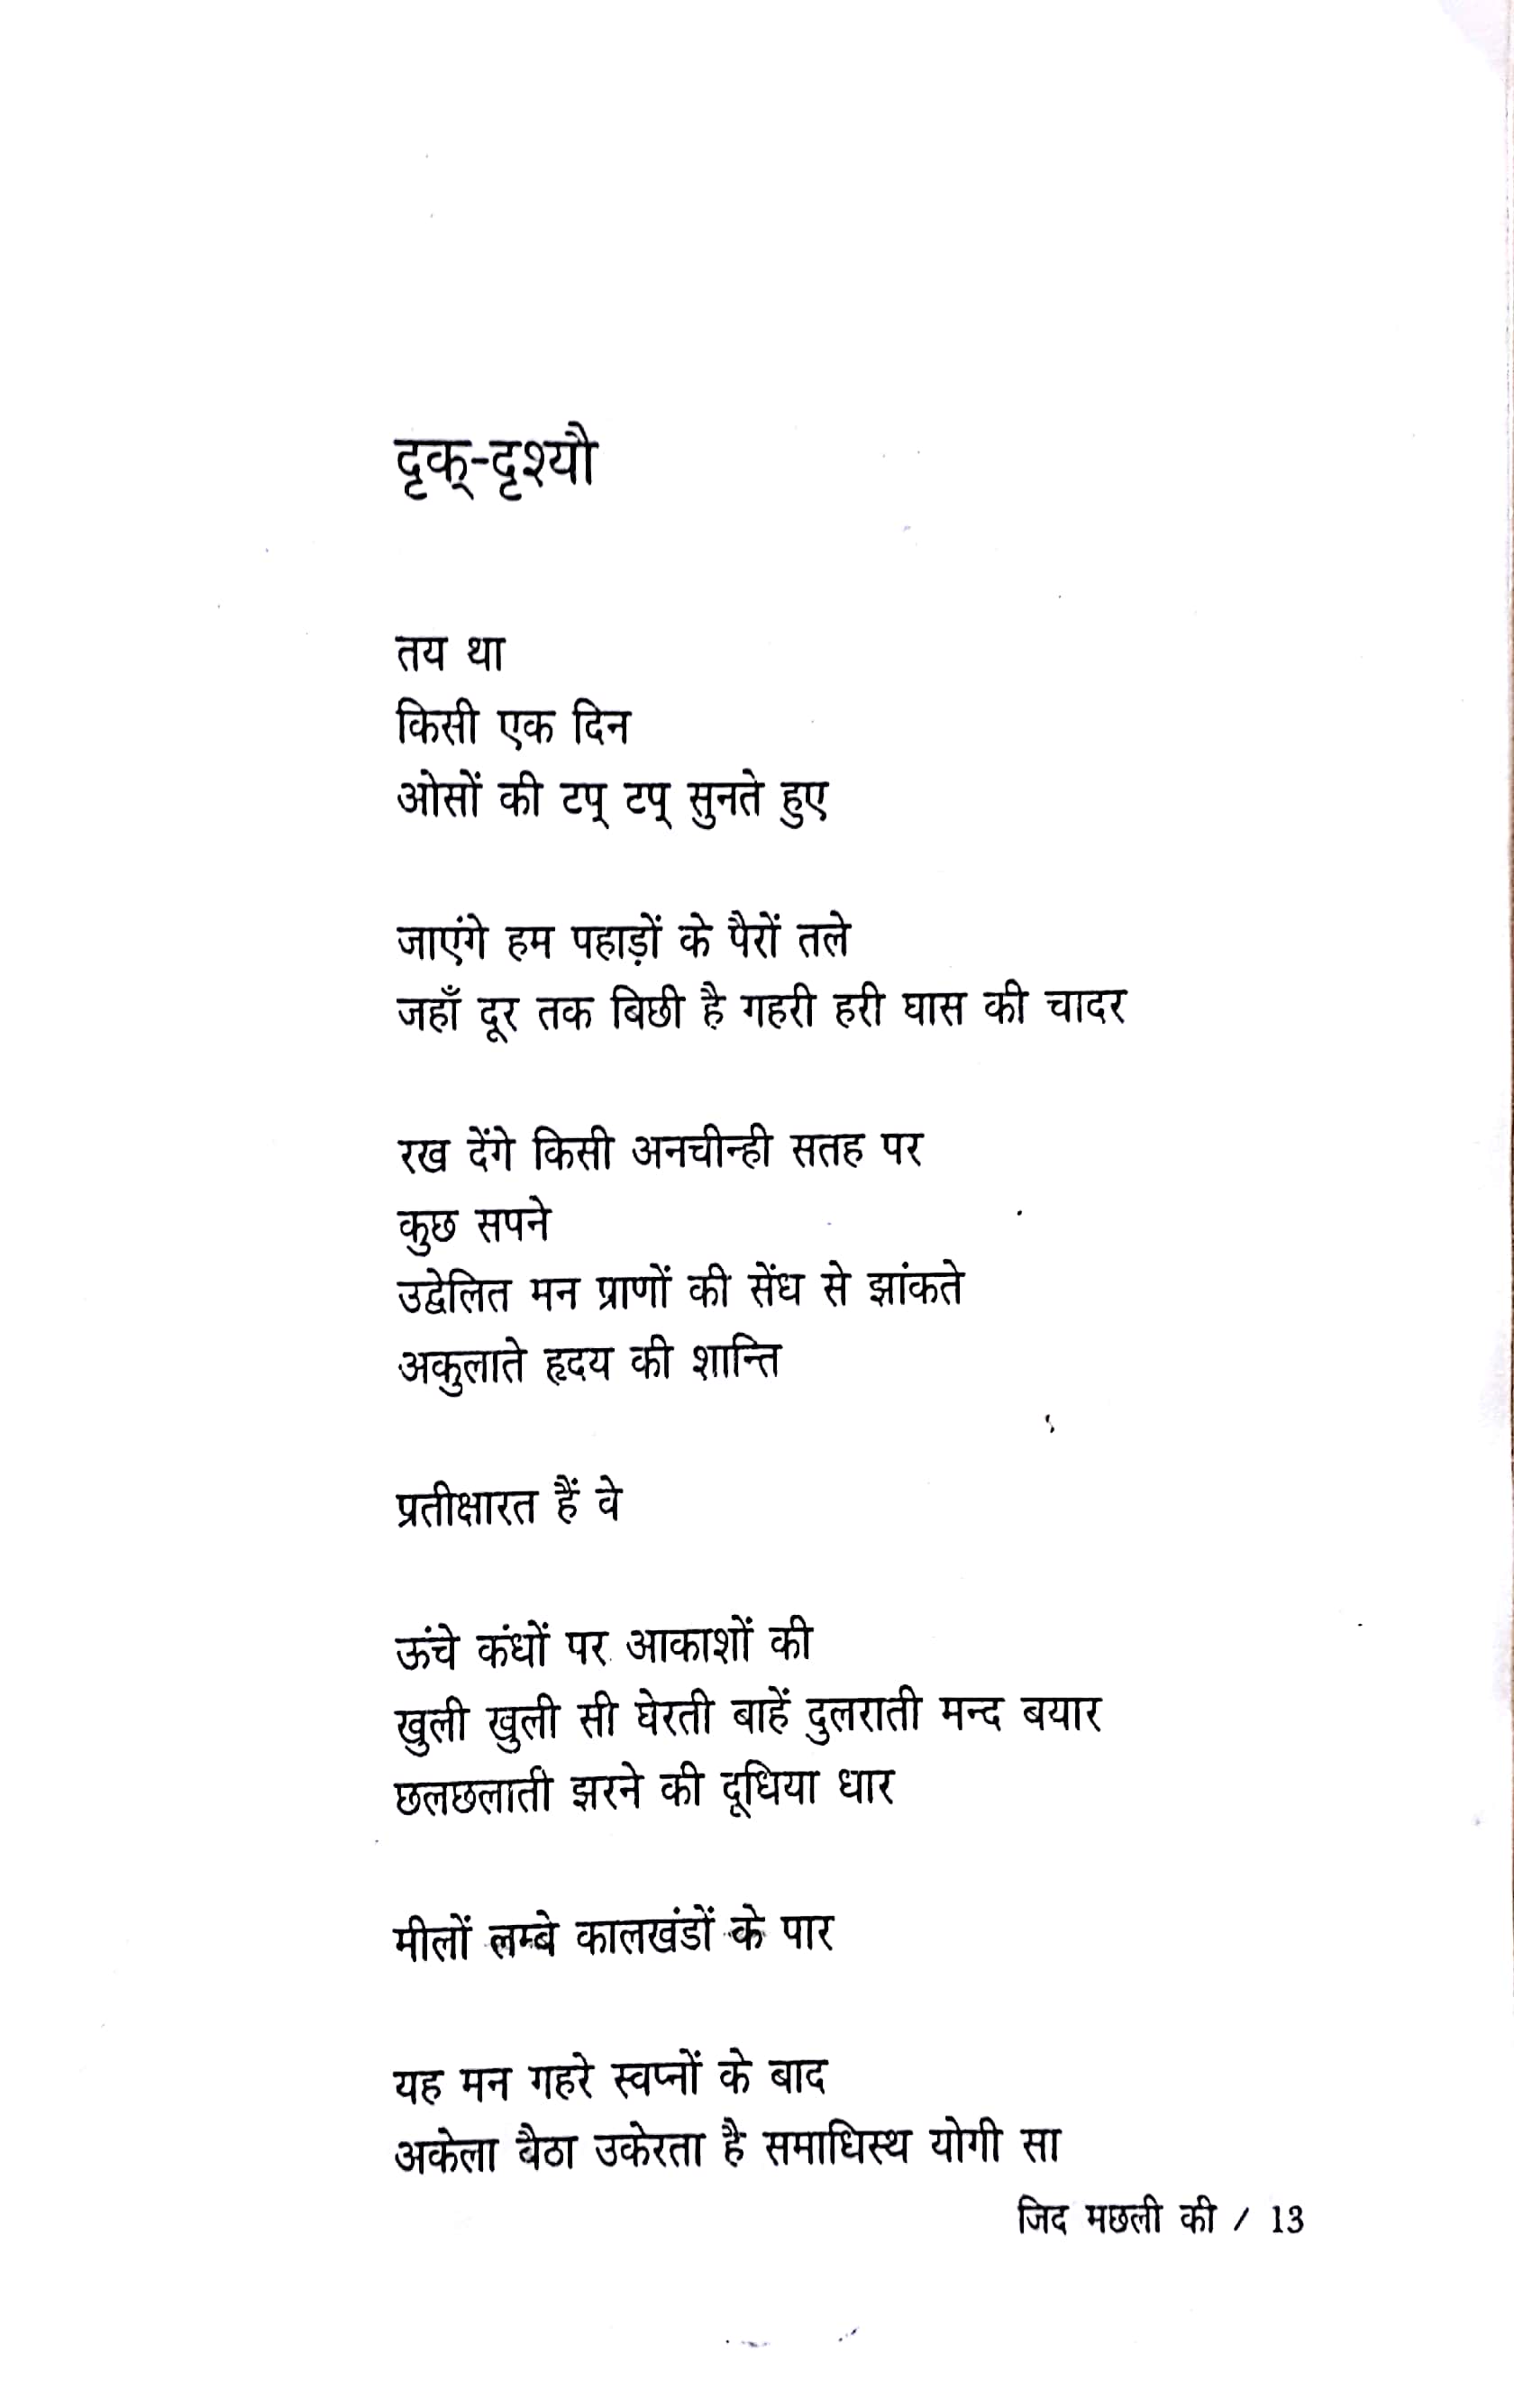 दृक्-दृश्यौ
तय था
किसी एक दिन
ओसों की टप् टप् सुनते हुए
जाएंगे हम पहाड़ों के पैरों तले
जहाँ दूर तक बिछी है गहरी हरी घास की चादर
रख देंगे किसी अनचीन्ही सतह पर
कुछ सपने
उद्वेलित मन प्राणों की सेंध से झांकते
अकुलाते हृदय की शान्ति
प्रतीक्षारत हैं वे
ऊंचे कंधों पर आकाशों की
खुली खुली सी घेरती बाहें दुलराती मन्द बयार
छलछलाती झरने की दूधिया धार
मीलों लम्बे कालखंडों के पार
यह मन गहरे स्वप्नों के बाद
अकेला बैठा उकेरता है समाधिस्थ योगी सा
जिद मछली की / 13